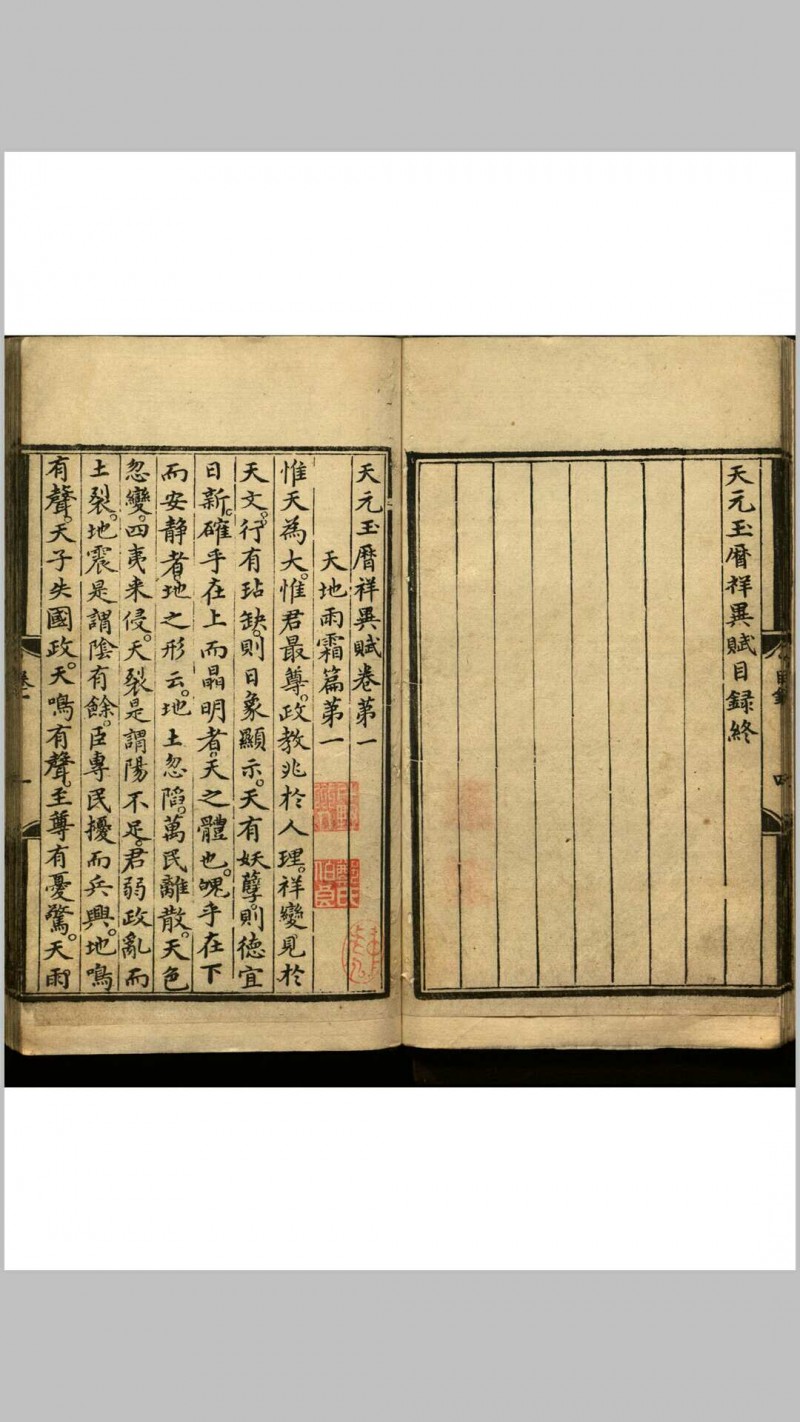 天元玉曆祥異賦目録終
天元玉曆祥異賦卷第一
天地雨霜篇第一
惟天為大。惟君最尊。政教兆於人理。祥變見於
天文。行有玷缺。則日象顯示。天有妖孽。則德宜
日新。確乎在上而晶明者。天之體也。塊乎在下
而安静者。地之形云。地土忽陷。萬民離散。天色
忽變。四夷来侵。天裂是謂陽不足。君弱政亂而
土裂。地震是謂陰有餘。臣專民擾而兵興。地鳴
有聲。天子失國政。天鳴有聲。至尊有憂驚。天雨